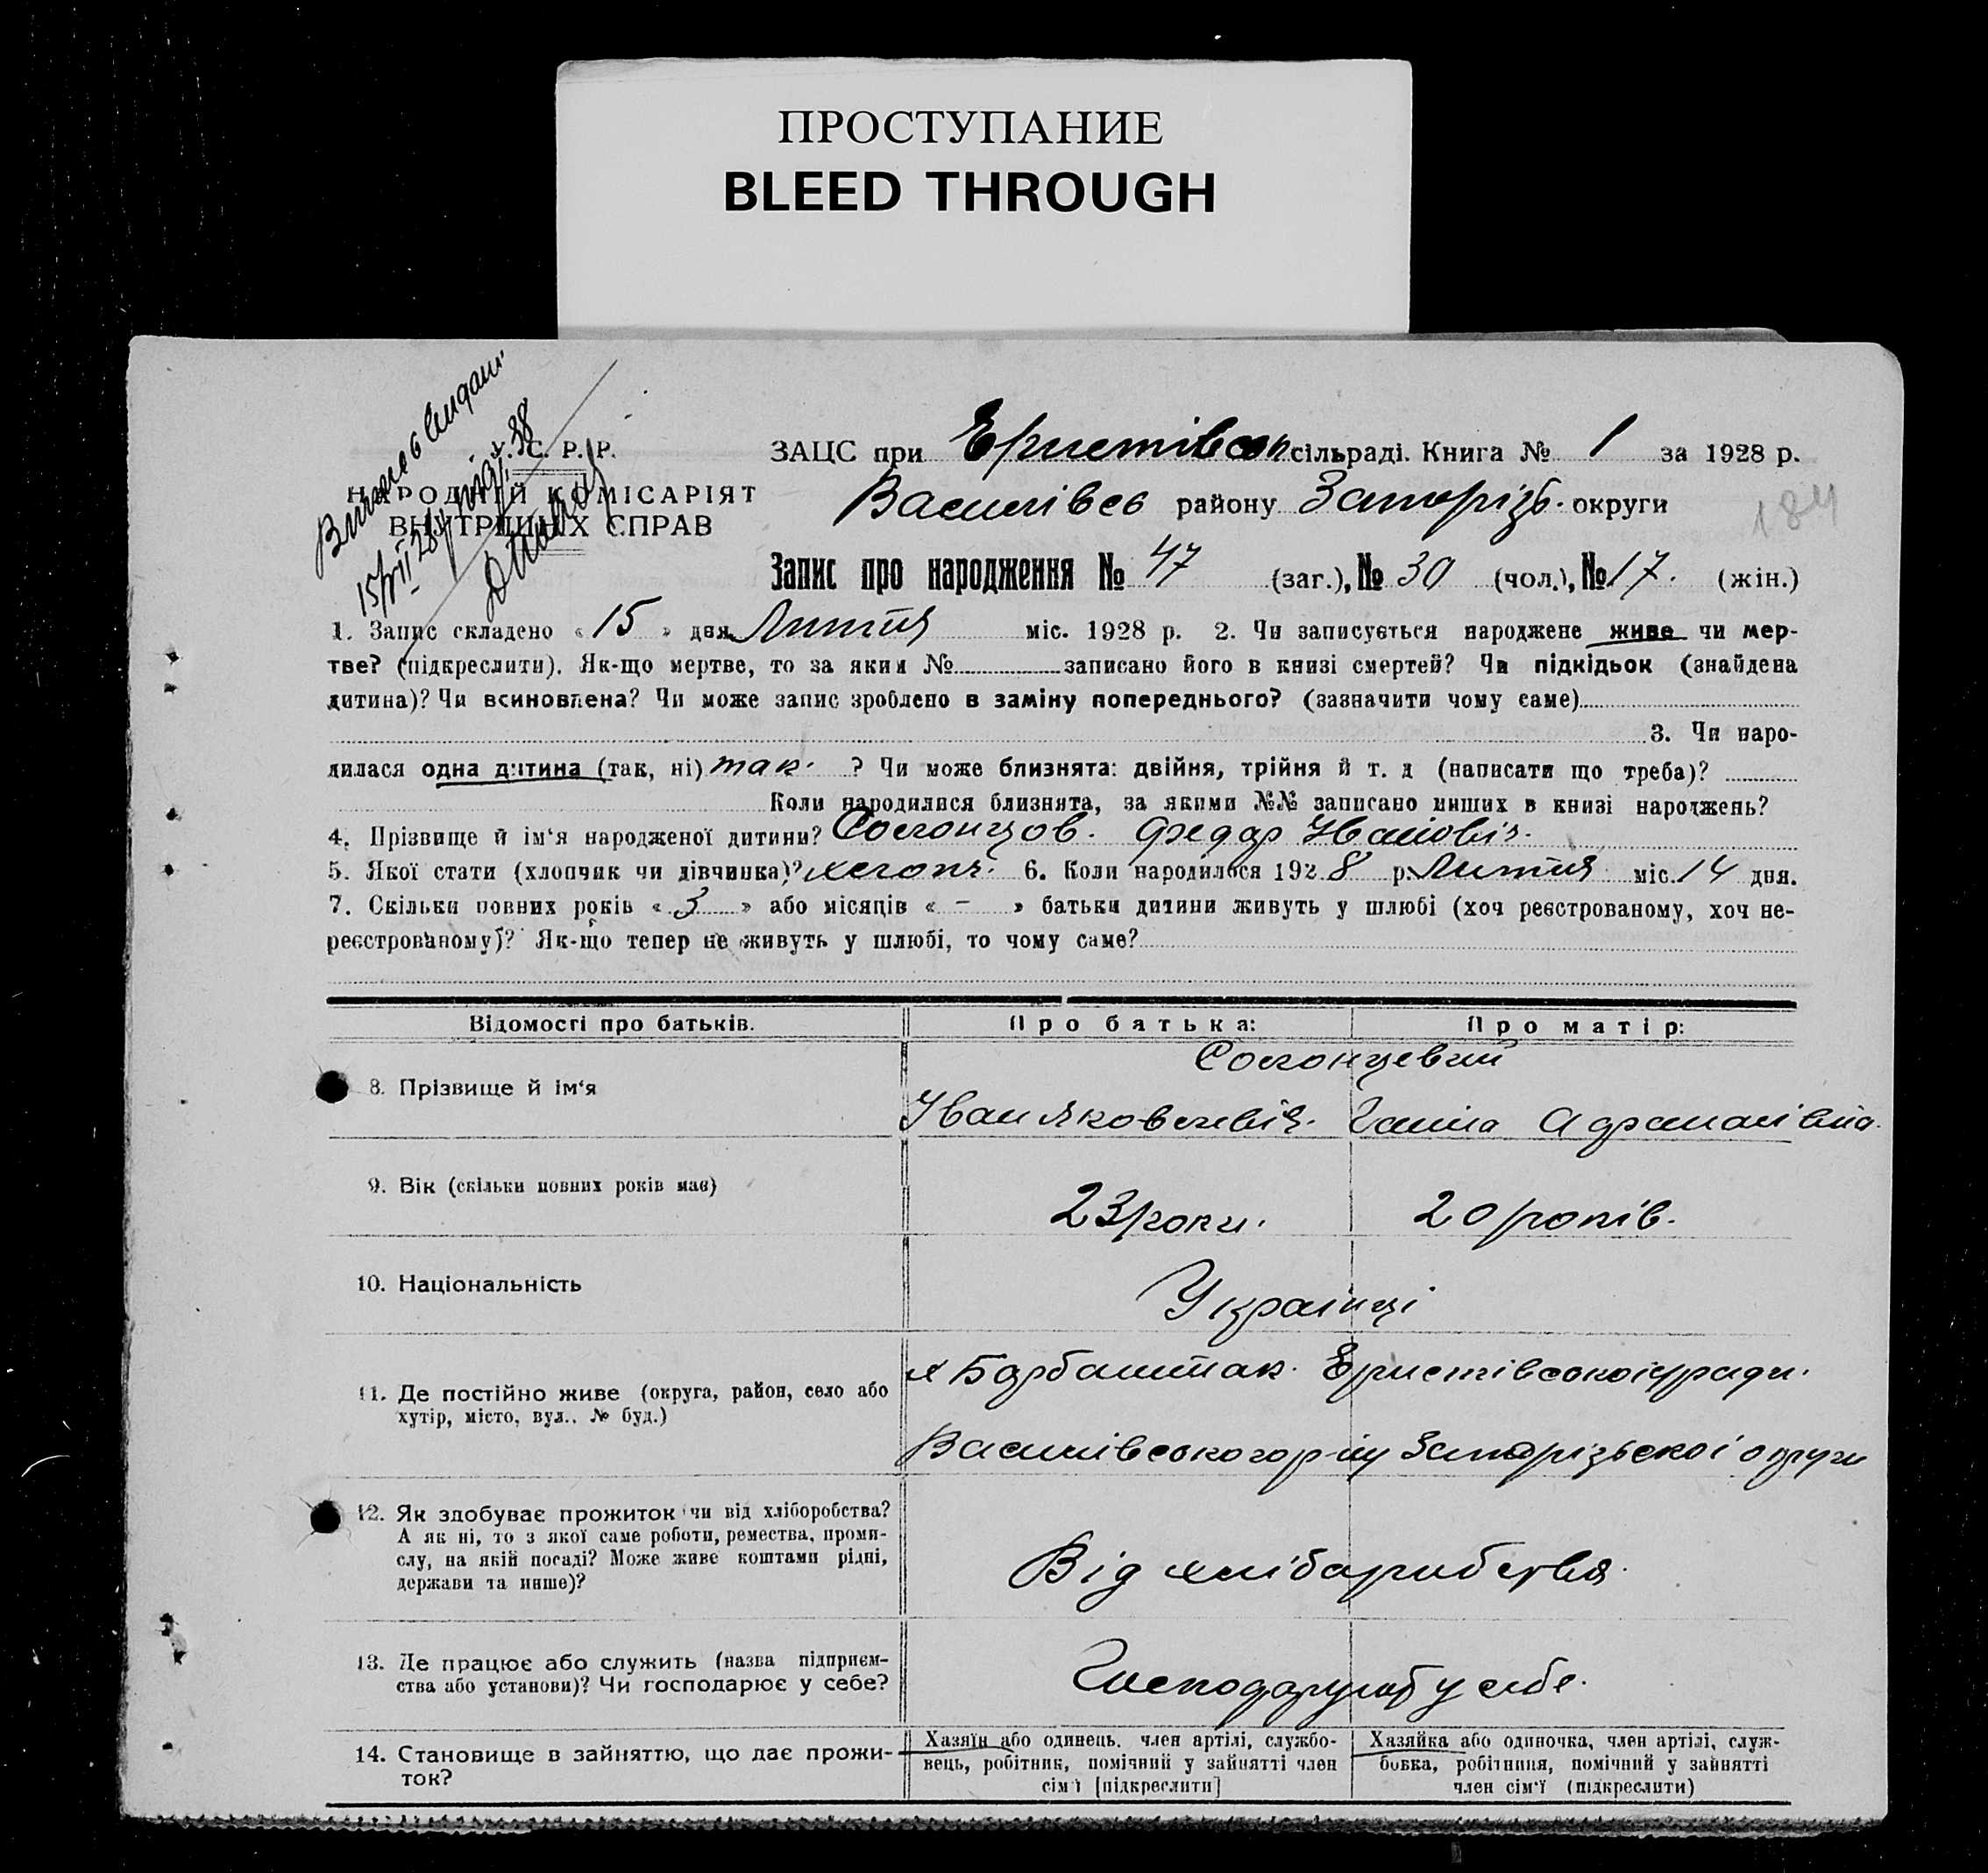 ПРОСТУПАНИЕ
BLEED THROUGH
У. С. Р. Р.
НАРОДНІЙ КОМІСАРІЯТ
ВНУТРІШНІХ СПРАВ
ЗАЦС при Еристівськ сільраді. Книга № 1 за 1928 р.
Василівсь району Запорізь. округи
184
Запис про народження № 47 (заг.), № 30 (чол.), № 17. (жін.)
1. Запис складено « 15 » дня Лютня міс. 1928 р. 2. Чи записується народжене живе чи мер-
тве? (підкреслити). Як-що мертве, то за яким № записано його в книзі смертей? Чи підкідьок (знайдена
дитина)? Чи всиновлена? Чи може запис зроблено в заміну попереднього? (зазначити чому саме)
3. Чи наро-
дилася одна дитина (так, ні) так. ? Чи може близнята: двійня, трійня й т. д (написати що треба)?
Коли народилися близнята, за якими №№ записано инших в книзі народжень?
4. Прізвище й ім'я народженої дитини? Солонцов. Федор Іванович.
5. Якої стати (хлопчик чи дівчинка)? хлопч. 6. Коли народилося 1928 р. Лютня міс. 14 дня.
7. Скільки повних років « 3 » або місяців « - » батьки дитини живуть у шлюбі (хоч реєстрованому, хоч не-
реєстрованому)? Як-що тепер не живуть у шлюбі, то чому саме?
Відомості про батьків. Про батька: Про матір:
Солонцевии
8. Прізвище й ім'я Іван Яковлевич. Ганна
9. Вік (скільки повних років має) 23 роки. 20 років.
10. Національність Українці
11. Де постійно живе (округа, район, село або
хутір, місто, вул., № буд.)
х Барбаштак. Еристівської с/ради.
Василівського р-ну Запорізьскої округи
12. Як здобуває прожиток чи від хліборобства?
А як ні, то з якої саме роботи, ремества, проми-
слу, на якій посаді? Може живе коштами рідні,
держави та инше)?
Від хліборобства.
13. Де працює або служить (назва підприєм-
ства або установи)? Чи господарює у себе?
Господарують у себе.
14. Становище в зайняттю, що дає прожи-
ток?
Хазяїн або одинець, член артілі, службо-
вець, робітник, помічний у зайнятті член
сім'ї [підкреслити]
Хазяйка або одиночка, член артілі, служ-
бовка, робітниця, помічний у зайнятті
член сім'ї (підкреслити)